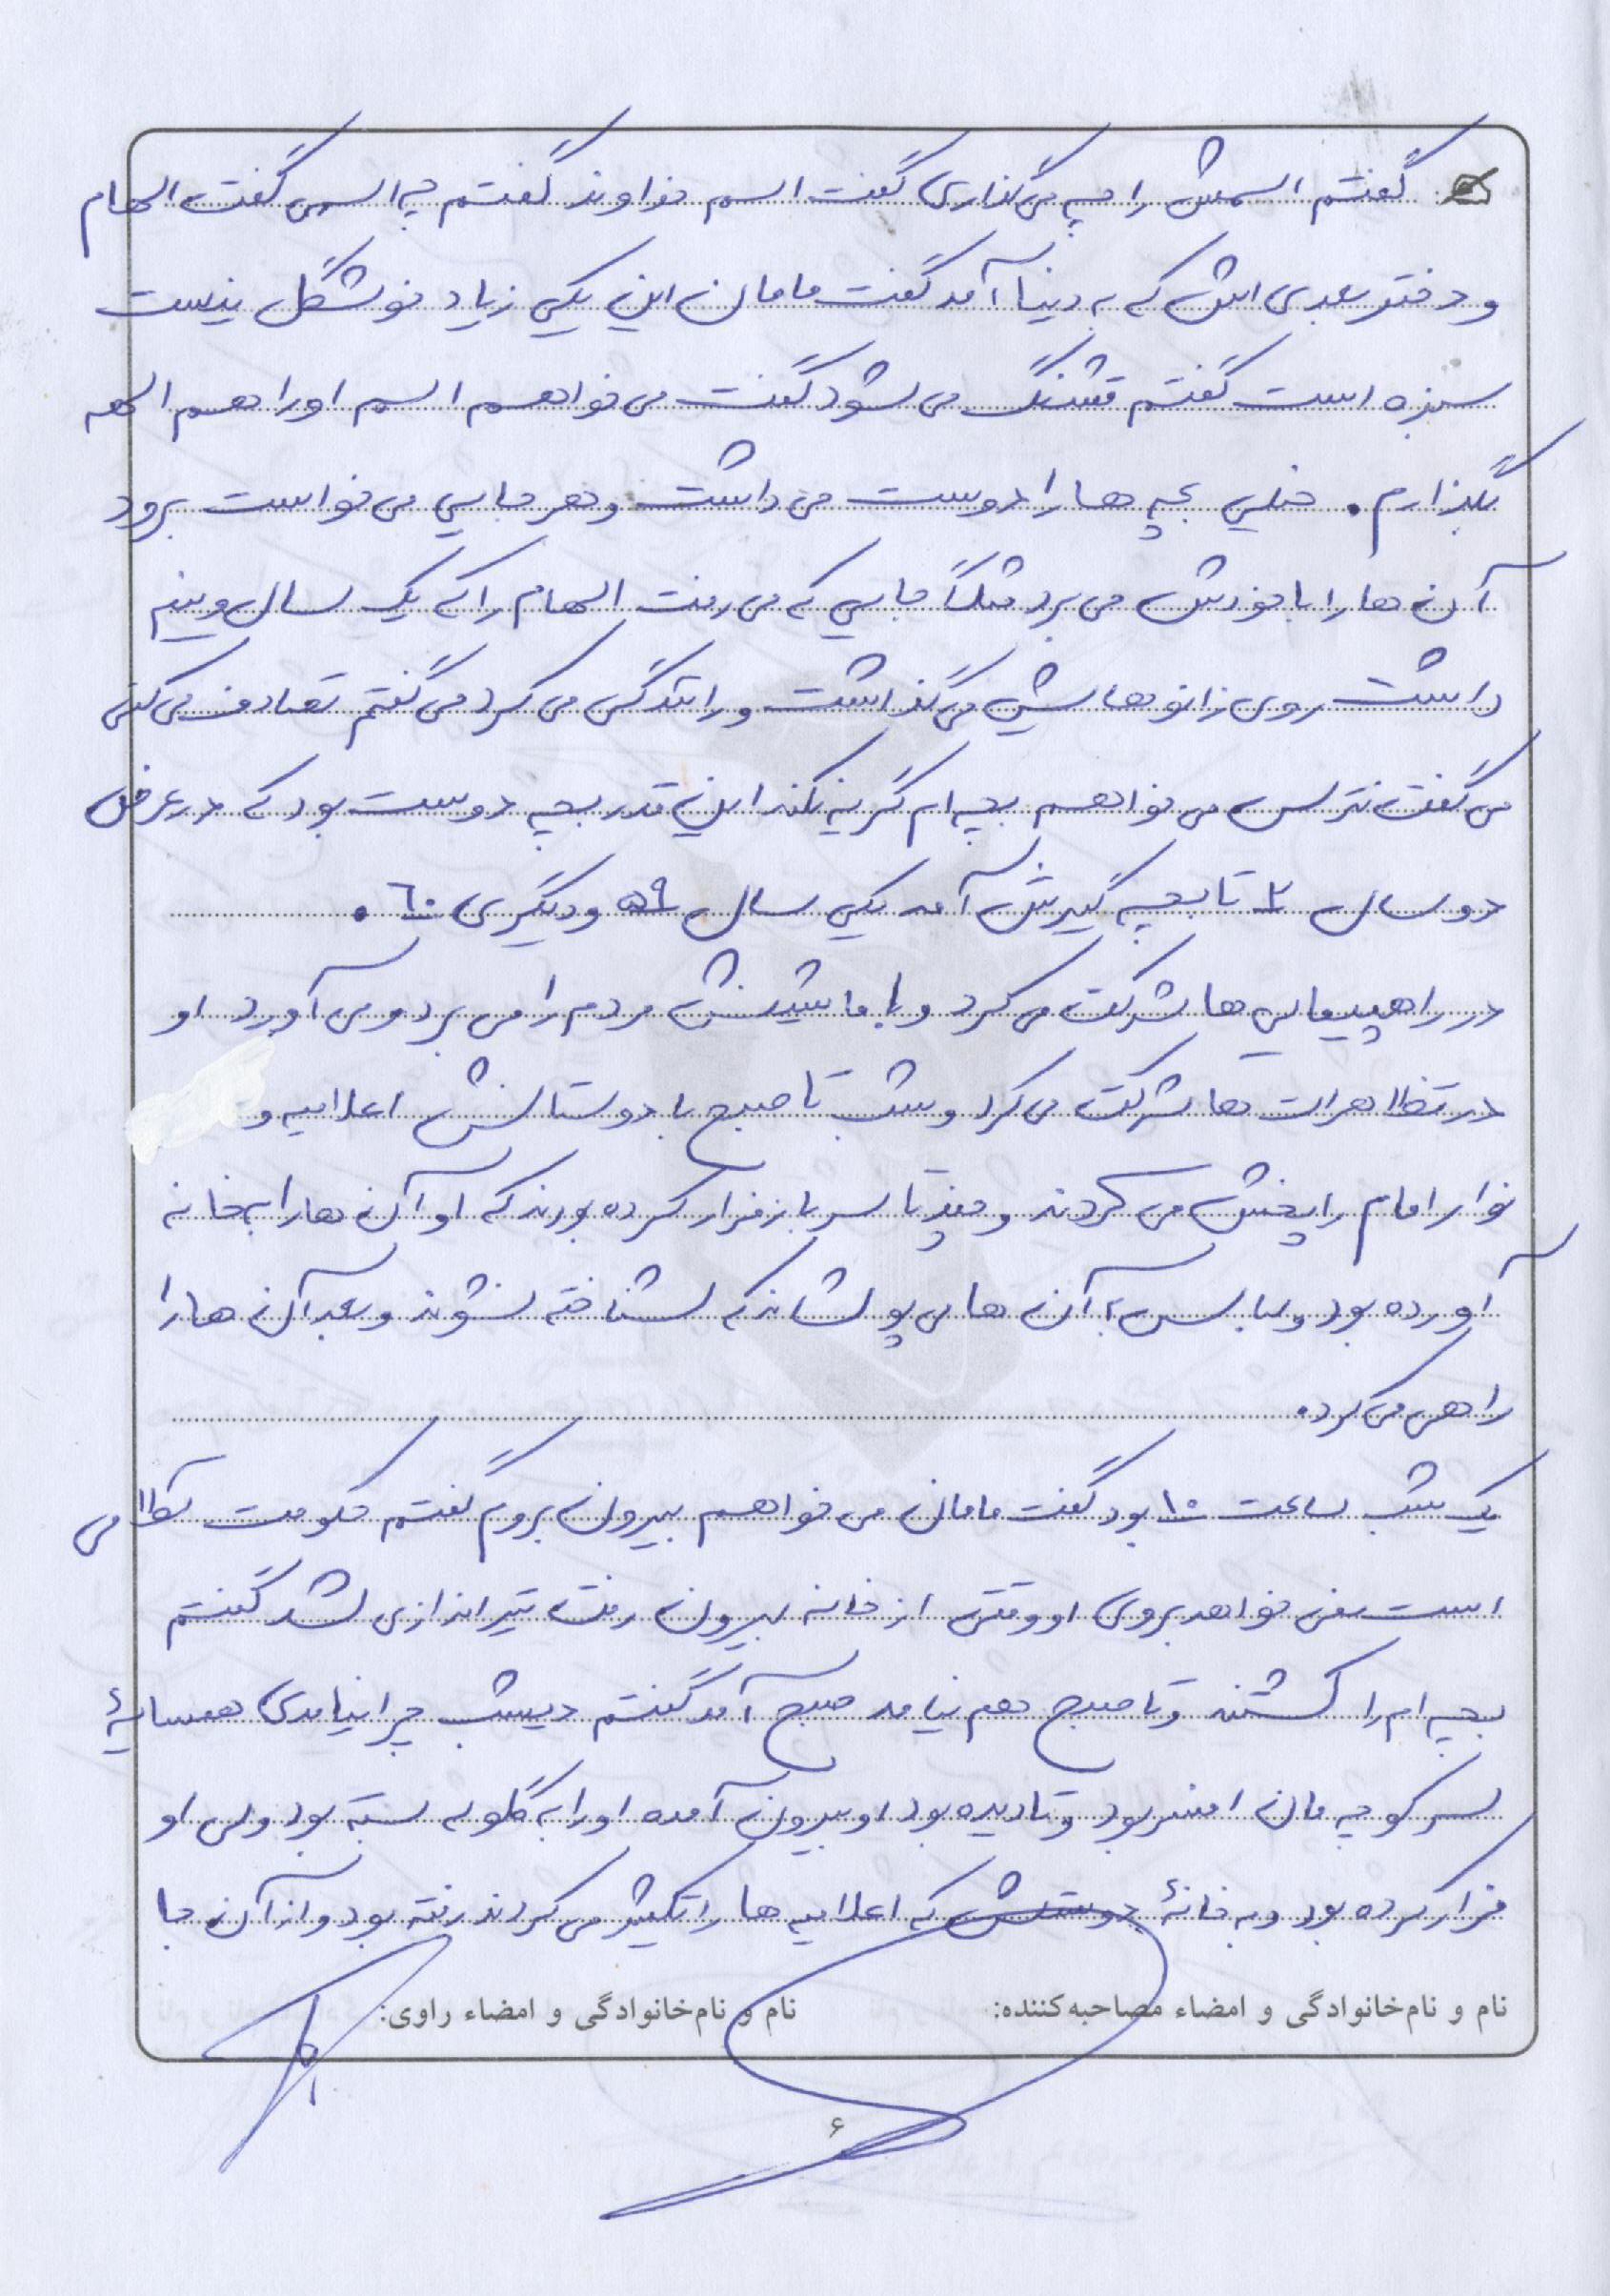 گفتم اسمش را چه می‌گذاری گفت اسم خداوند گفتم چه اسمی گفت الهام
و دختر بعدی اش که به دنیا آمد گفت مامان این یکی زیاد خوشگل نیست
سبزه است گفتم قشنگ می شود گفت می خواهم اسم او را هم الهه
بگذارم. خیلی بچه ها را دوست می داشت و هر جایی می خواست برود
آن ها را با خودش می برد مثلاً جایی که می رفت الهام را که یک سال و نیم
داشت روی زانوهایش می گذاشت و رانندگی می کرد می گفتم تصادف می کنی
می گفت نترس می خواهم بچه ام گریه نکند این قدر بچه دوست بود که در عرض
دو سال ۲ تا بچه گیرش آمد یکی سال ۵۹ و دیگری ۶۰.
در راهپیمایی ها شرکت می کرد و با ماشینش مردم را می برد و می آورد او
در تظاهرات ها شرکت می کرد و شب تا صبح با دوستانش اعلامیه و
نوار امام را پخش می کردند و چند تا سرباز فرار کرده بودند که او آن ها را به خانه
آورده بود و لباس به آن ها می پوشاند که شناخته نشوند و بعد آن ها را
راهی می کرد.
یک شب ساعت ۱۰ بود گفت مامان می خواهم بیرون بروم گفتم حکومت نظامی
است نمی خواهد بروی او وقتی از خانه بیرون رفت تیراندازی شد گفتم
بچه ام را کشتند و تا صبح هم نیامد صبح آمد گفتم دیشب چرا نیامدی همسایهٔ
سر کوچه مان افسر بود و تا دیده بود او بیرون آمده او را به گلوله بسته بود ولی او
فرار کرده بود و به خانهٔ دوستش که اعلامیه ها را تکثیر می کردند رفته بود و از آن جا
نام و نام‌خانوادگی و امضاء مصاحبه‌کننده: نام و نام‌خانوادگی و امضاء راوی:
۶